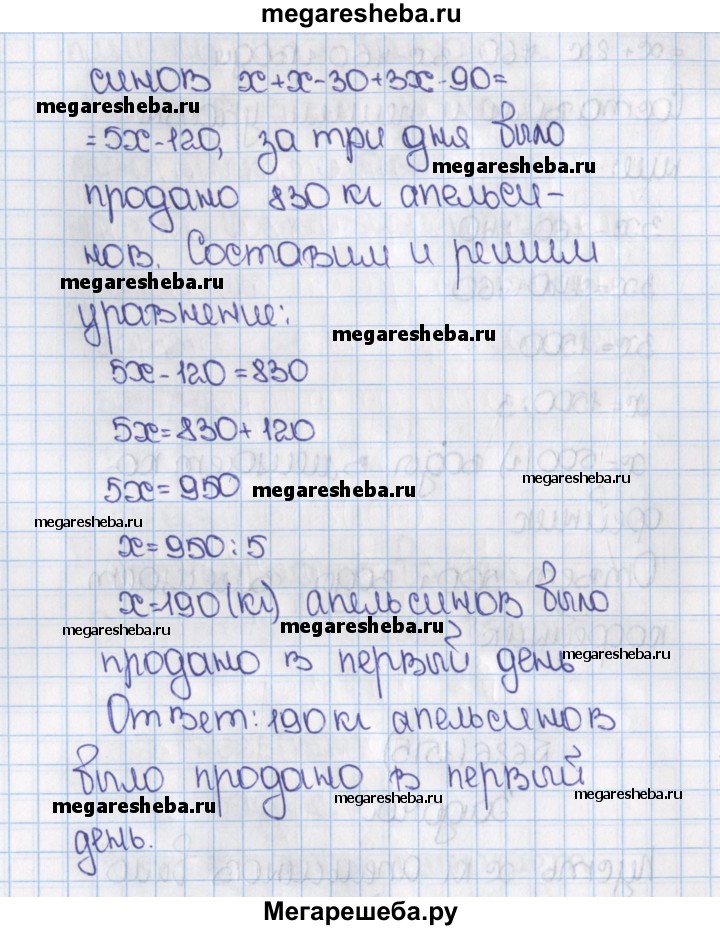 megaresheba.ru
синов x+x-30+3x-90=
megaresheba.ru
=5x-120, за три дня было
megaresheba.ru
продано 830 кг апельси-
нов. Составим и решим
megaresheba.ru
уравнение:
megaresheba.ru
5x-120=830
5x=830+120
5x=950
megaresheba.ru
megaresheba.ru
megaresheba.ru
x=950:5
x=190(кг) апельсинов было
megaresheba.ru
megaresheba.ru
продано в первый день
megaresheba.ru
Ответ: 190 кг апельсинов
было продано в первый
megaresheba.ru
megaresheba.ru
megaresheba.ru
день.
Мегарешеба.ру